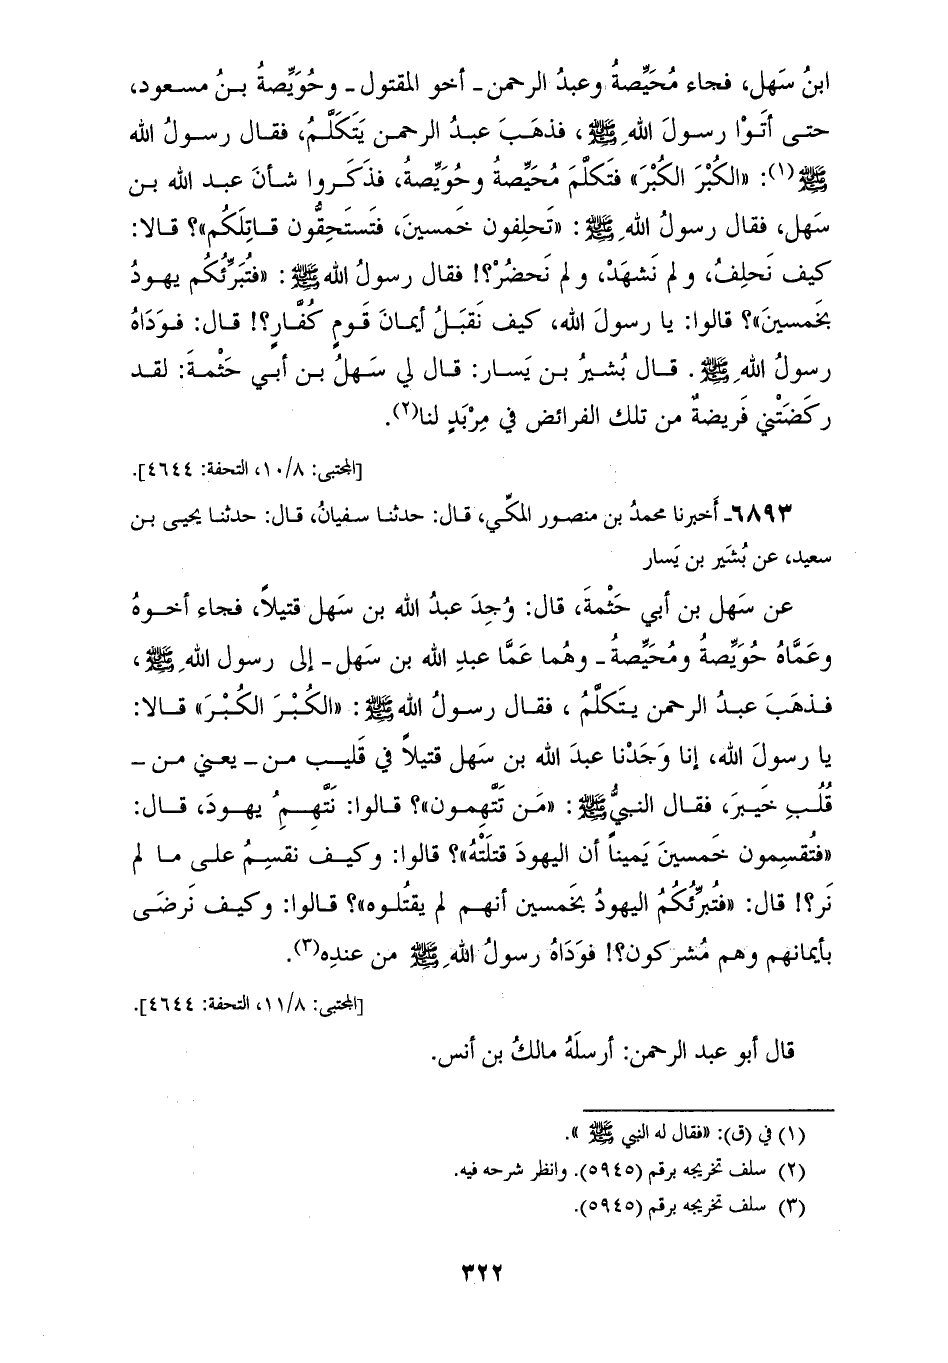 ابنُ سَهل، فجاء مُحَيِّصةُ وعبدُ الرحمن ـ أخو المقتول ـ وحُوَيِّصةُ بنُ مسعود،
حتى أتَوْا رسولَ اللهِ ﷺ، فذهَبَ عبدُ الرحمن يَتَكلَّمُ، فقال رسولُ الله
ﷺ(١): «الكُبْرَ الكُبْرَ» فتَكلَّمَ مُحَيِّصةُ وحُوَيِّصةُ، فذكَروا شأنَ عبد الله بن
سَهل، فقال رسولُ اللهِ ﷺ: «تَحلِفون خَمسينَ، فتَستَحِقُّون قاتِلَكُم»؟ قالا:
كيف نَحلِفُ، ولم نَشهَدْ، ولم نَحضُرْ؟! فقال رسولُ الله ﷺ: «فتُبَرِّئُكُم يهودُ
بخَمسينَ»؟ قالوا: يا رسولَ الله، كيف نَقبَلُ أيمانَ قَومٍ كُفَّارٍ؟! قال: فوَدَاهُ
رسولُ اللهِ ﷺ. قال بُشيرُ بن يَسار: قال لي سَهلُ بن أبي حَثْمةَ: لقد
ركَضَتْني فَريضةٌ من تلك الفرائض في مِرْبَدٍ لنا(٢).
[المجتبى: ١٠/٨، التحفة: ٤٦٤٤].
٦٨٩٣ـ أخبرنا محمدُ بن منصور المكِّي، قال: حدثنا سفيانُ، قال: حدثنا يحيى بن
سعيد، عن بُشَير بن يَسار
عن سَهل بن أبي حَثْمةَ، قال: وُجِدَ عبدُ الله بن سَهل قتيلاً، فجاء أخوهُ
وعَمَّاهُ حُوَيِّصةُ ومُحَيِّصةُ ـ وهُما عَمَّا عبدِ الله بن سَهل ـ إلى رسول اللهِ ﷺ،
فذهَبَ عبدُ الرحمن يتَكلَّمُ، فقال رسولُ اللهِ ﷺ: «الكُبْرَ الكُبْرَ» قالا:
يا رسولَ الله، إنا وَجَدْنا عبدَ الله بن سَهل قتيلاً في قَليب من ـ يعني من ـ
قُلُبِ خَيبرَ، فقال النبيُّ ﷺ: «مَن تَتَّهِمون»؟ قالوا: نَتَّهِمُ يهودَ، قال:
«فتُقسِمون خَمسينَ يَميناً أن اليهودَ قتلَتْهُ»؟ قالوا: وكيف نقسِمُ على ما لم
نَر؟! قال: «فتُبرِّئُكُمُ اليهودُ بخَمسين أنهم لم يقتُلوه»؟ قالوا: وكيف نَرضَى
بأيمانهم وهم مُشركون؟! فوَدَاهُ رسولُ اللهِ ﷺ من عندِه(٣).
[المجتبى: ١١/٨، التحفة: ٤٦٤٤].
قال أبو عبد الرحمن: أرسلَهُ مالكُ بن أنس.
(١) في (ق): «فقال له النبي ﷺ».
(٢) سلف تخريجه برقم (٥٩٤٥). وانظر شرحه فيه.
(٣) سلف تخريجه برقم (٥٩٤٥).
٣٢٢